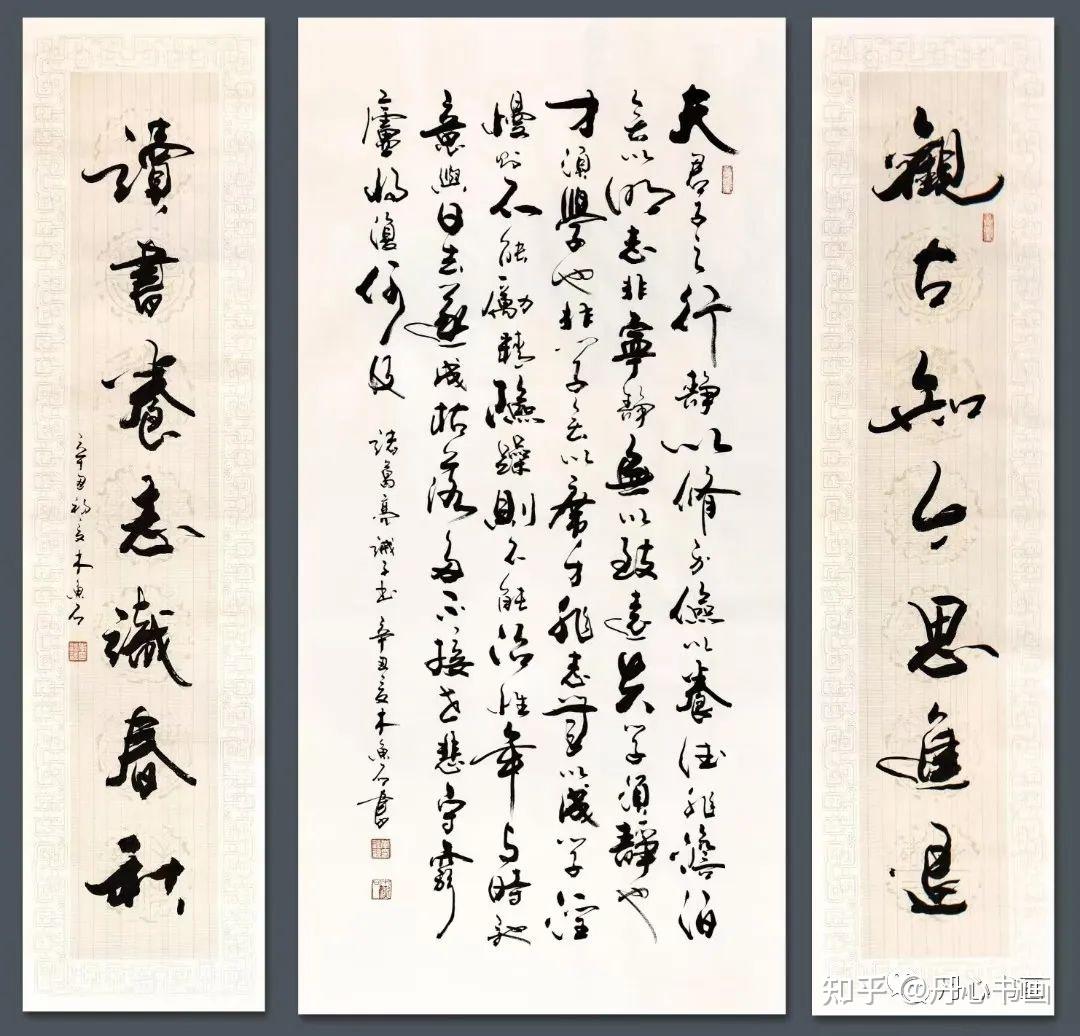 觀古知今思進退
夫君子之行靜以脩身儉以養德非澹泊
無以明志非寧靜無以致遠夫學須靜也
才須學也非學無以廣才非志無以成學淫
慢則不能勵精險躁則不能治性年與時馳
意與日去遂成枯落多不接世悲守窮
廬將復何及
諸葛亮誡子書 辛丑夏木魚石書
讀書養志識春秋
辛丑初夏木魚石
知乎 @丹心书画